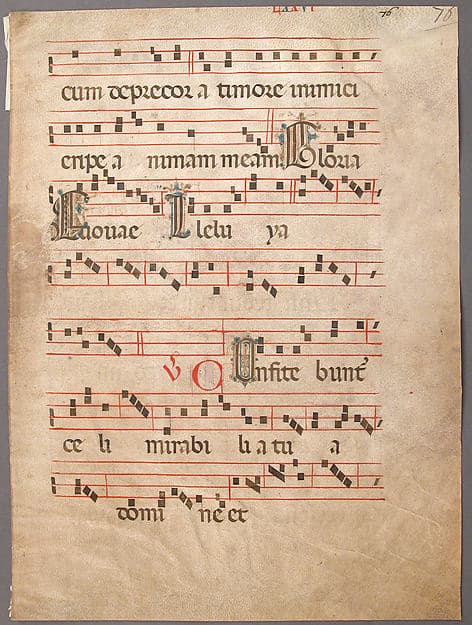 LXXVI 76 76
cum deprecor a timore inimici
eripe a nimam meam Gloria
Euouae Llelu ya
V Onfite bunt̃
ce li mirabi li a tu a
domi ne et